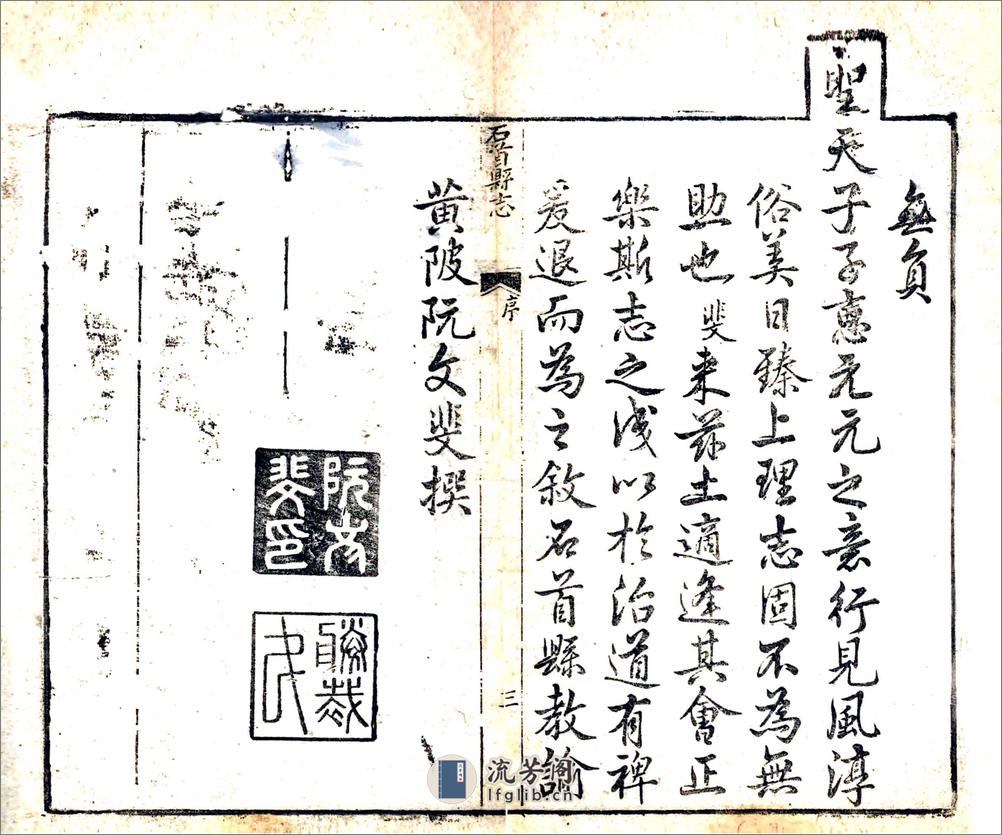 無負
聖天子子惠元元之意行見風淳
俗美日臻上理志固不為無
助也斐来茲土適逢其會正
樂斯志之成以於治道有裨
爰退而為之敘石首縣教諭
石首縣志
序
三
黄陂阮文斐撰
阮文
斐印
流芳閣
lfglib.cn